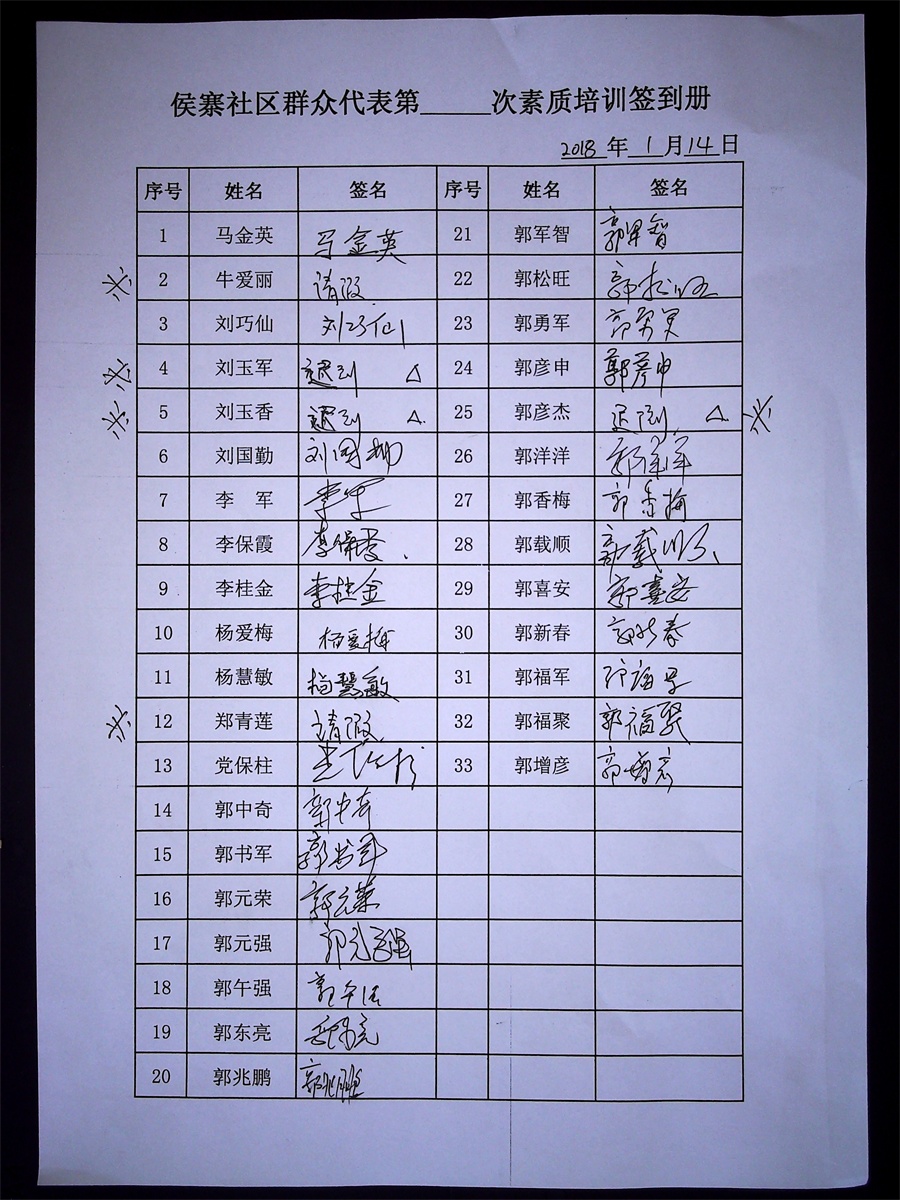 侯寨社区群众代表第_____次素质培训签到册
2018 年 1 月 14 日
序号 姓名 签名 序号 姓名 签名
1 马金英 马金英 21 郭军智 郭军智
2 牛爱丽 请假 22 郭松旺 郭松旺
3 刘巧仙 刘巧仙 23 郭勇军 郭勇军
4 刘玉军 迟到 △ 24 郭彦申 郭彦申
5 刘玉香 迟到 △ 25 郭彦杰 迟到 △
6 刘国勤 刘国勤 26 郭洋洋 郭洋洋
7 李 军 李军 27 郭香梅 郭香梅
8 李保霞 李保霞 28 郭载顺 郭载顺
9 李桂金 李桂金 29 郭喜安 郭喜安
10 杨爱梅 杨爱梅 30 郭新春 郭新春
11 杨慧敏 杨慧敏 31 郭福军 郭福军
12 郑青莲 请假 32 郭福聚 郭福聚
13 党保柱 党保柱 33 郭增彦 郭增彦
14 郭中奇 郭中奇
15 郭书军 郭书军
16 郭元荣 郭元荣
17 郭元强 郭元强
18 郭午强 郭午强
19 郭东亮
20 郭兆鹏 郭兆鹏